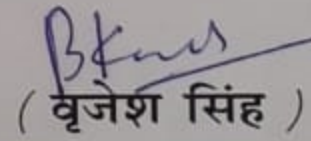 ( वृजेश सिंह )